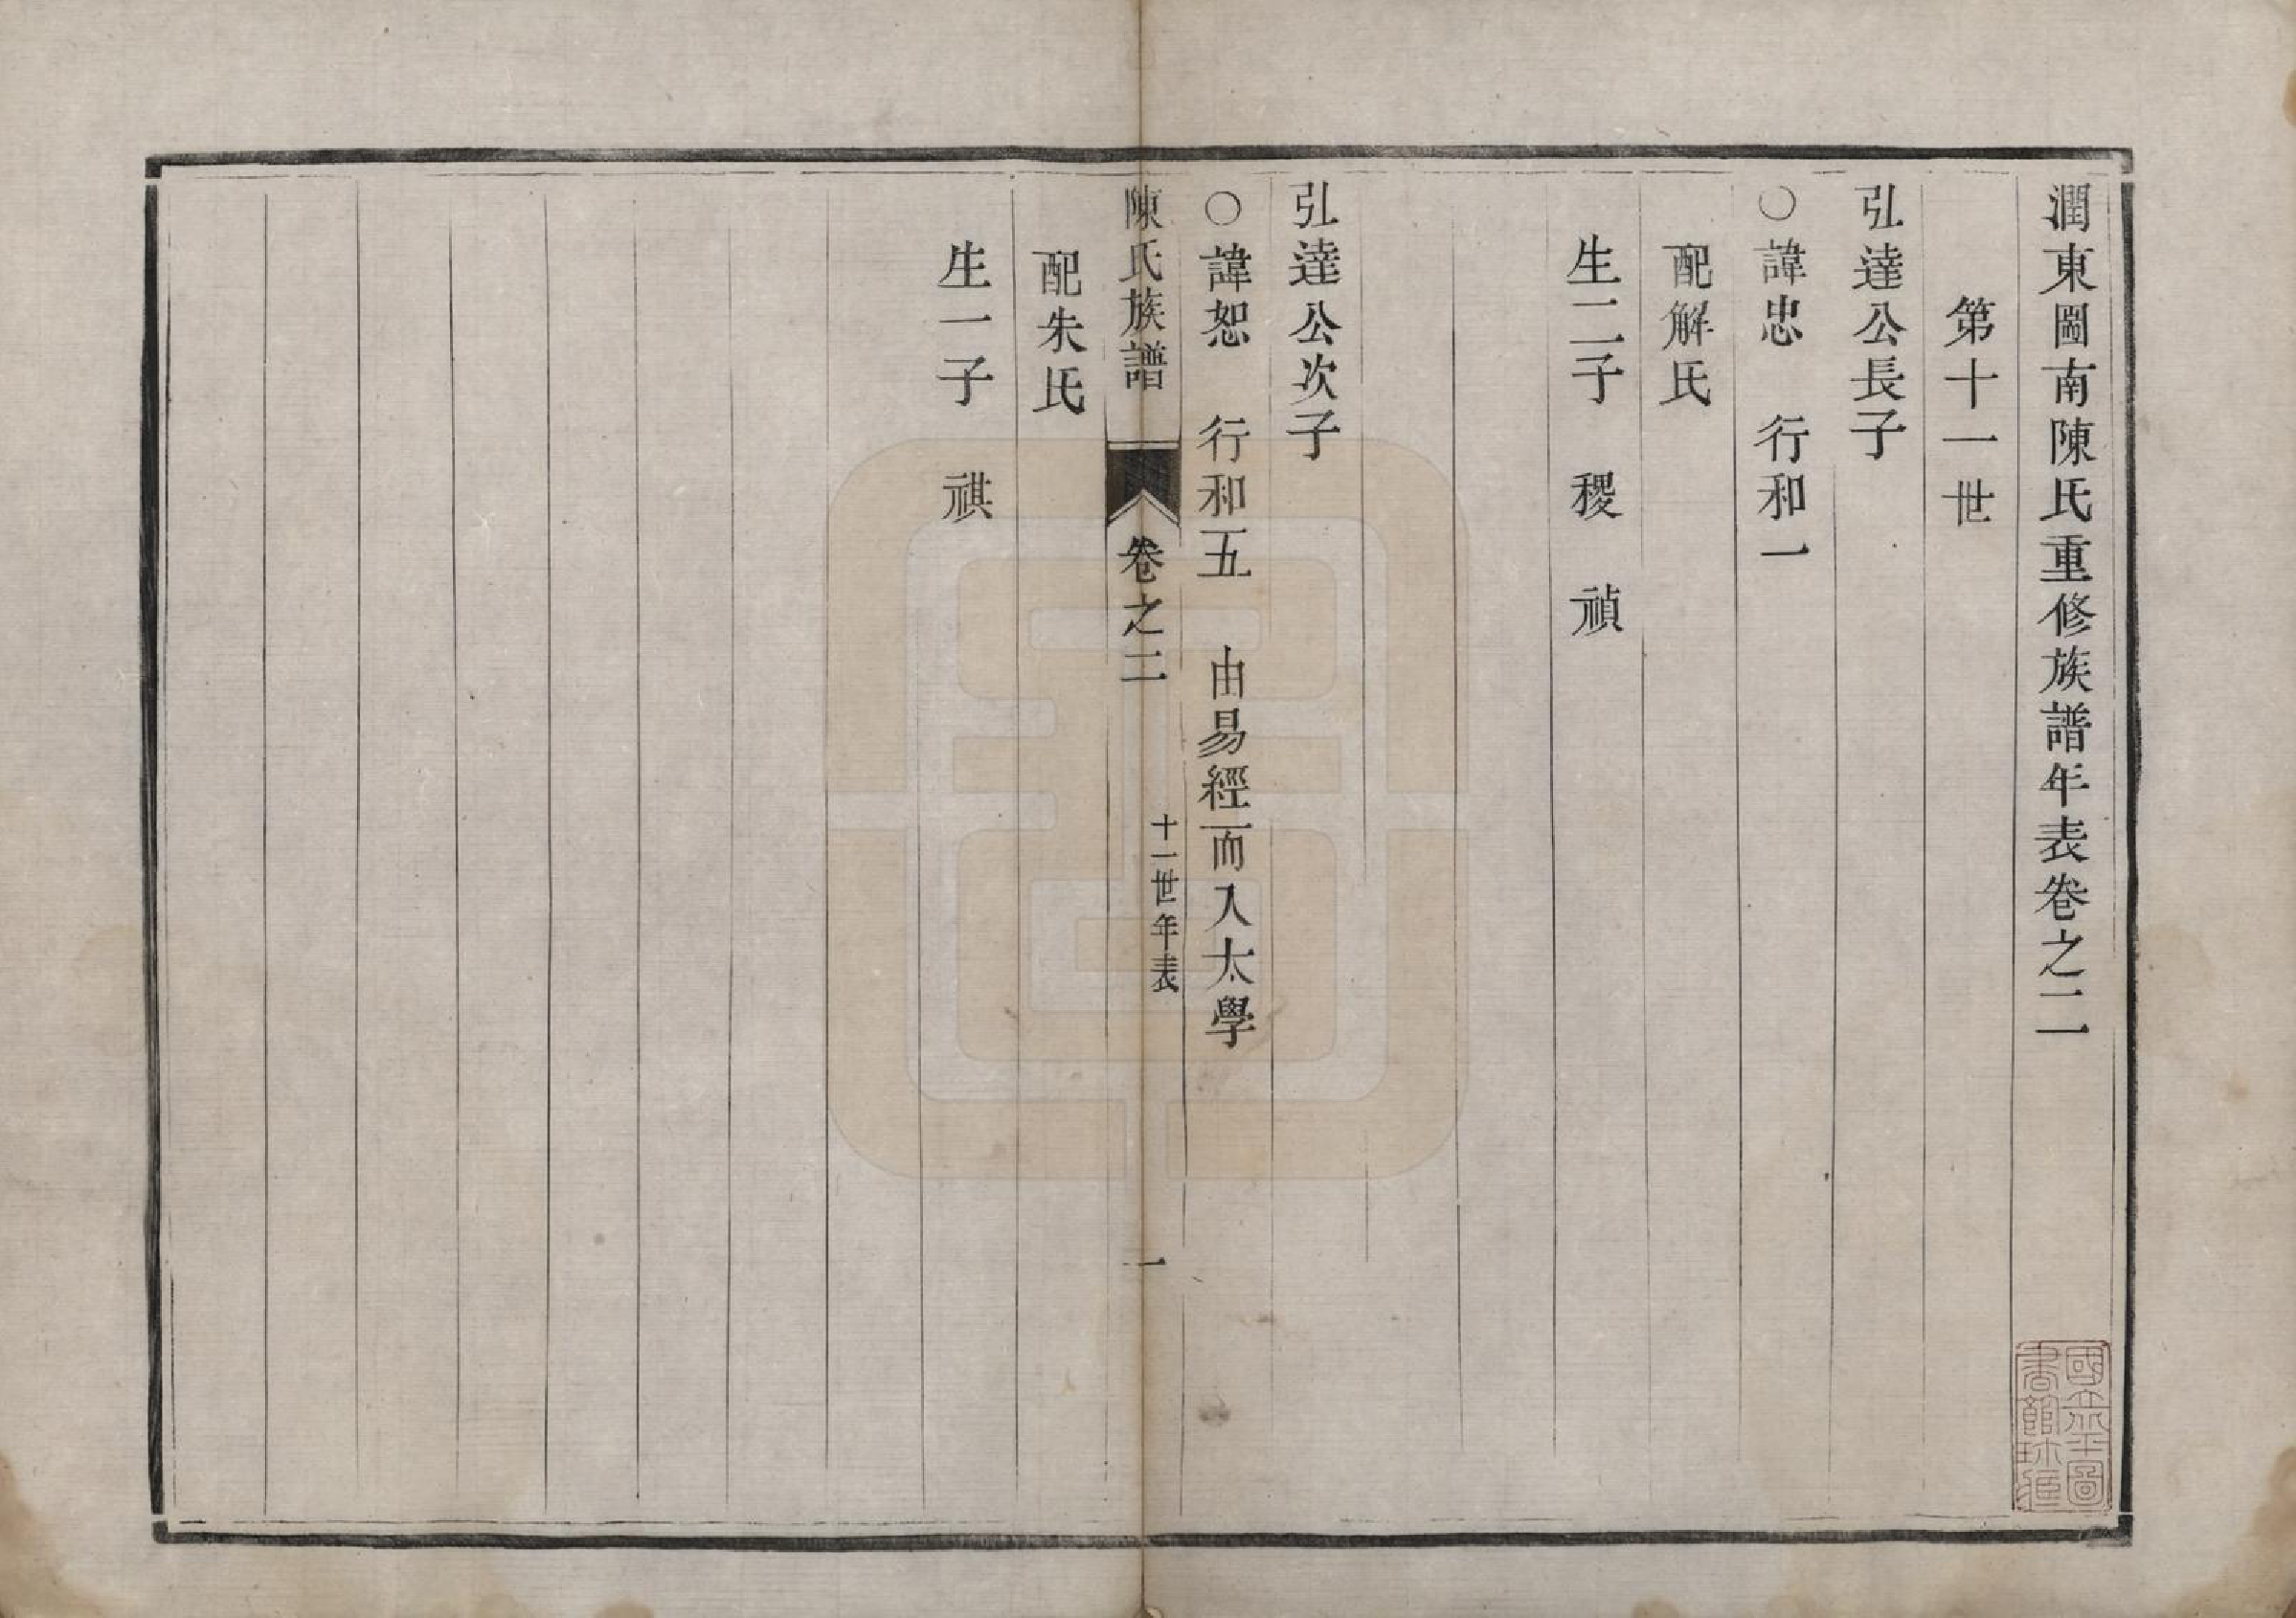 潤東圖南陳氏重修族譜年表卷之二
第十一世
弘逹公長子
○諱忠　行和一
配解氏
生二子　稷　禎
弘逹公次子
○諱恕　行和五　由易經而入太學
陳氏族譜　卷之二　十一世年表　一
配朱氏
生一子　祺
國立北平圖書館珍藏